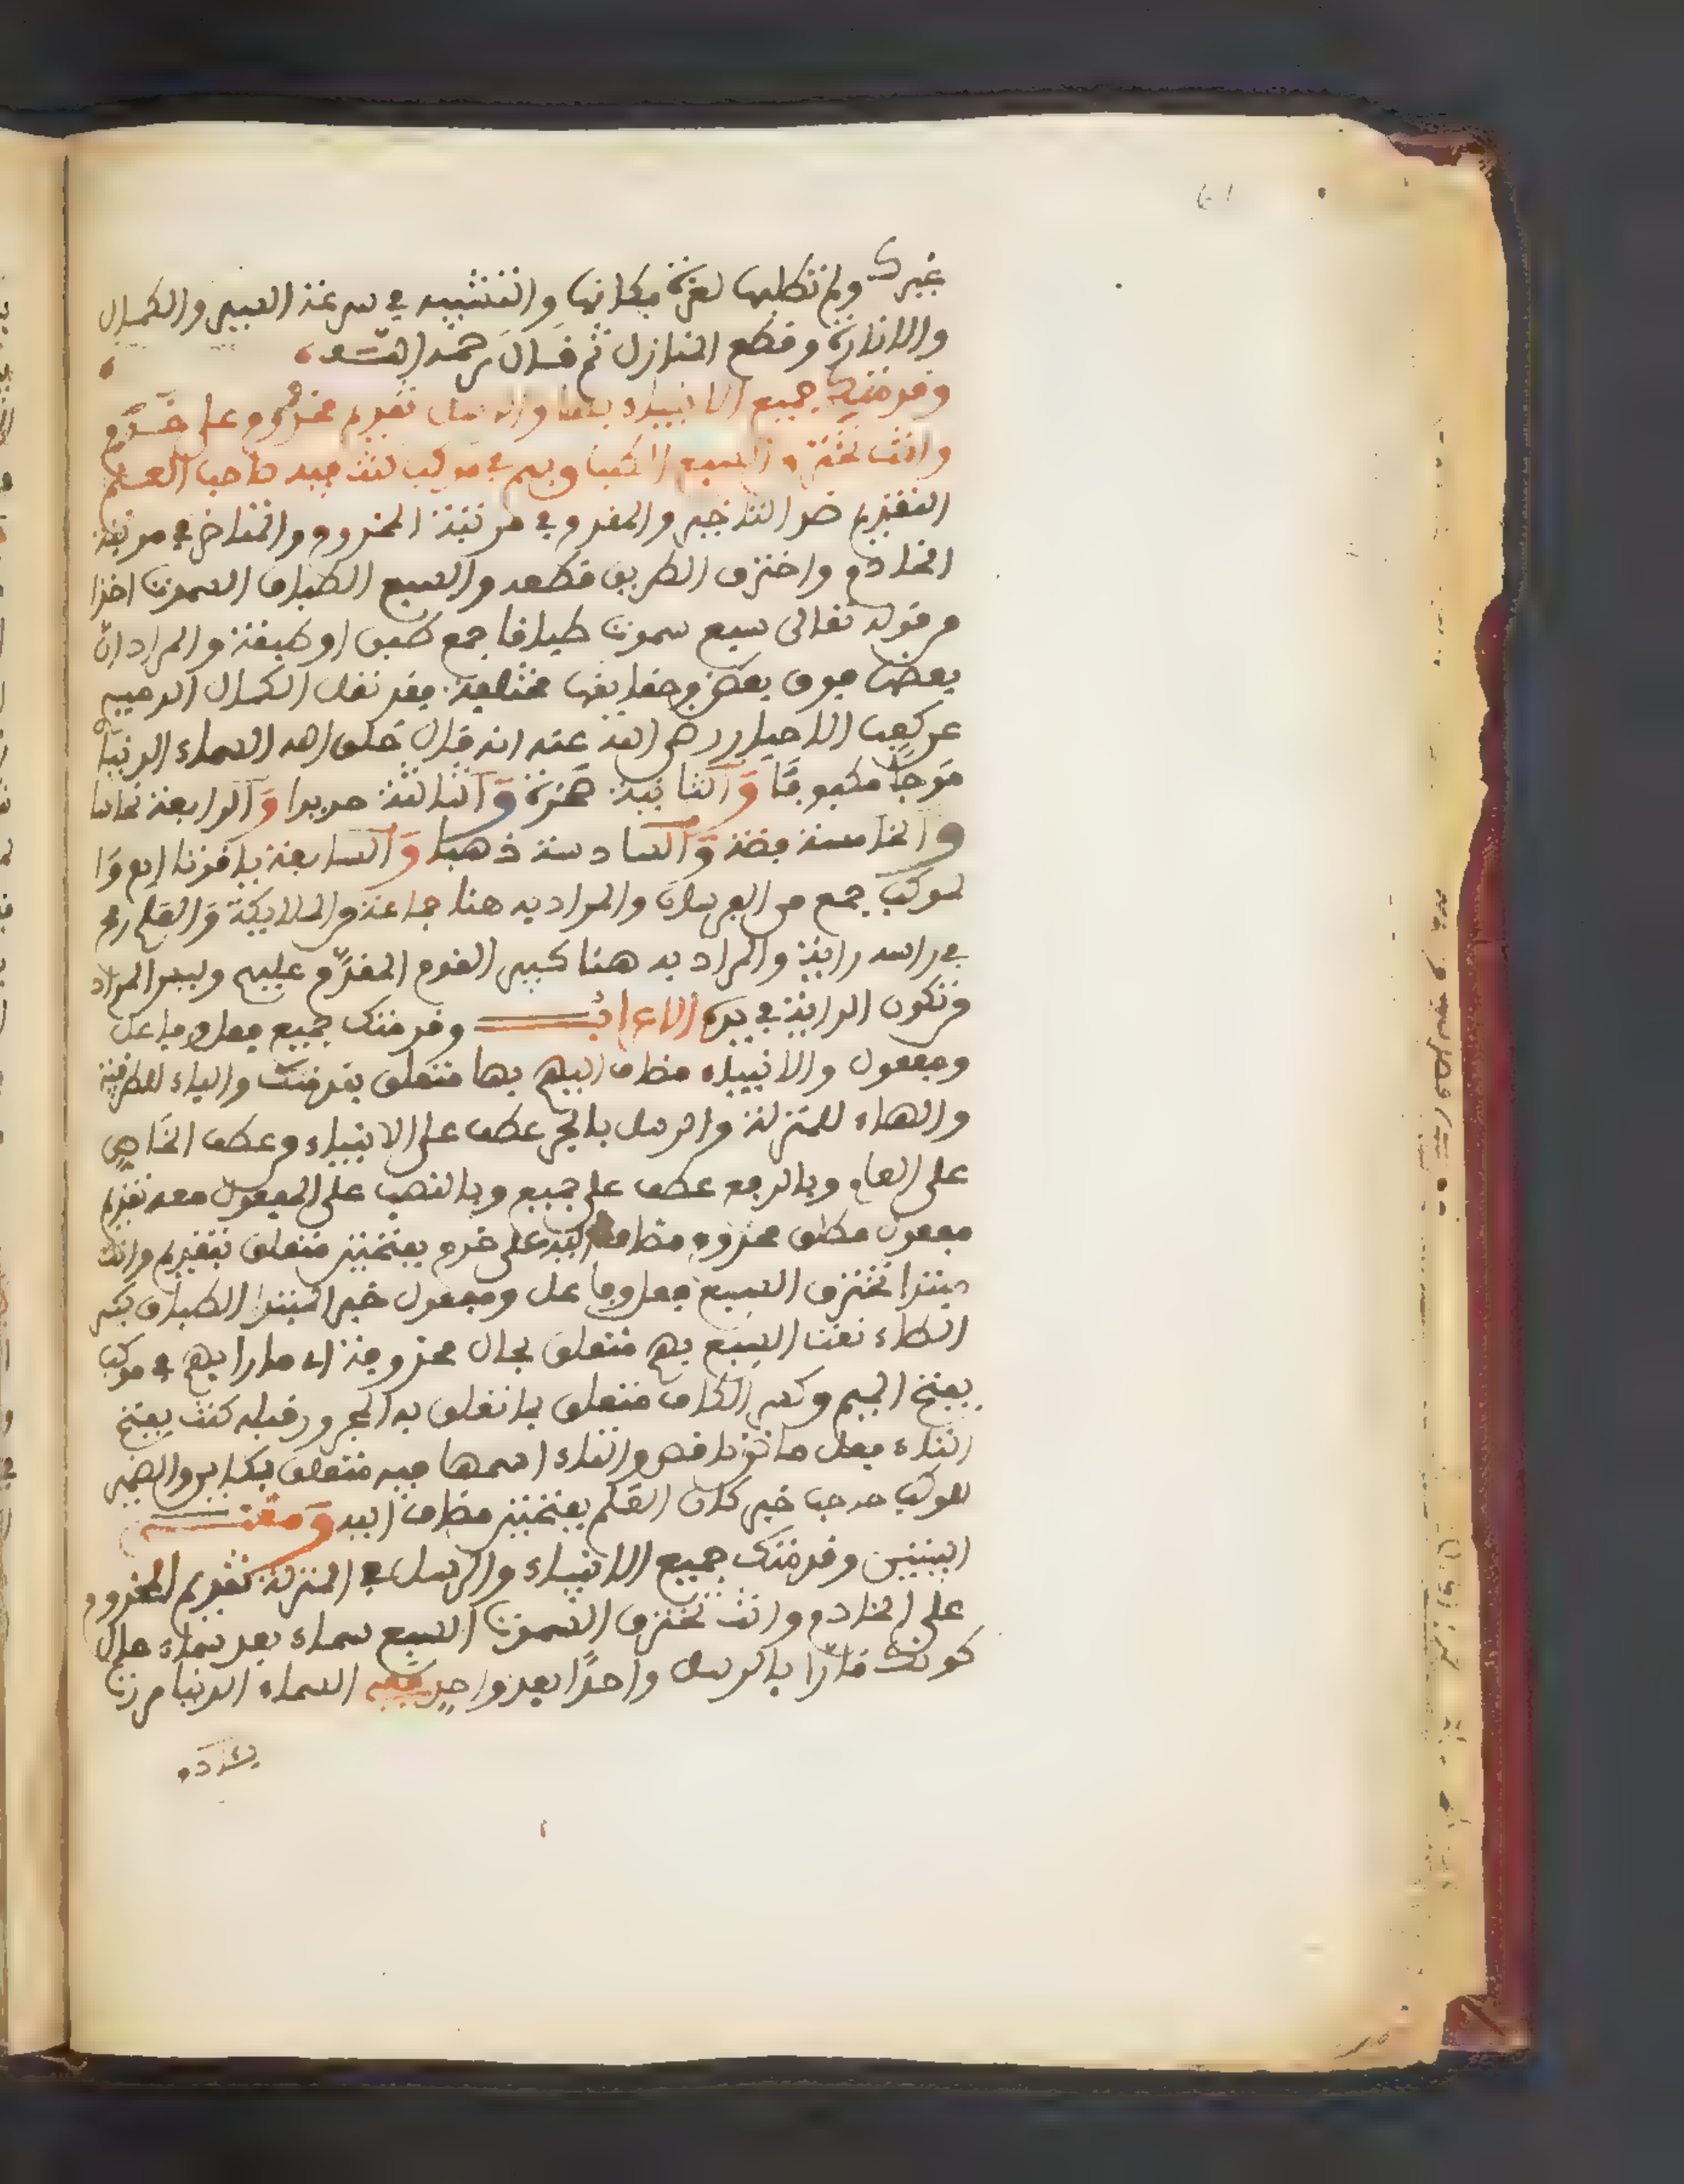 غيرك ولم تطلبها لعزة مكانها والتشبيه في سرعة السير والكمال
والانارة وقطع المنازل ثم قال رحمه الله
وقدمتك جميع الانبياء بها والرسل تقديم مخدوم على خدم
وانت تخترق السبع الطباق بهم في موكب كنت فيه صاحب العلم
التقديم ضد التاخير والمقدم في مرتبة المخدوم والمتاخر في مرتبة
الخادم واخترق الطريق قطعه والسبع الطباق السموت اخذا
من قوله تعالى سبع سموت طباقا جمع طبق او طبقة والمراد ان
بعضها فوق بعض وحقايقها مختلفة فقد نقل الكمال الدميري
عن كعب الاحبار رضي الله عنه انه قال خلق الله السماء الدنيا
موجا مكفوفا والثانية صخرة والثالثة حديدا والرابعة نحاسا
والخامسة فضة والسادسة ذهبا والسابعة ياقوتا
الموكب جمع من الفرسان والمراد به هنا جماعة من الملايكة والعلم رمح
في راسه راية والمراد به هنا كبير القوم المقدم عليهم وليس المراد
من تكون الراية في يده الاعراب وقدمتك جميع فعل وفاعل
ومفعول والانبياء مضاف اليهم بها متعلق بقدمتك والباء للظرفية
والهاء للمنزلة والرسل بالجر عطف على الانبياء من عطف الخاص
على العام وبالرفع عطف على جميع وبالنصب على المفعول معه تقديم
مفعول مطلق مخدوم مضاف اليه على خدم بفتحتين متعلق بتقديم وانت
مبتدا تخترق السبع فعل وفاعل ومفعول خبر المبتدا الطباق بكسر
الطاء نعت السبع بهم متعلق بحال محذوفة اي مارا بهم في موكب
بفتح الميم وكسر الكاف متعلق بما تعلق به المجرور قبله كنت بفتح
التاء فعل ماض ناقص والتاء اسمها فيه متعلق بكاين والضمير
للموكب صاحب خبر كان العلم بفتحتين مضاف اليه ومعنى
البيتين وقدمتك جميع الانبياء والرسل في المنزلة تقديم المخدوم
على الخادم وانت تخترق السموت السبع سماء بعد سماء حال
كونك مارا بالرسل واحدا بعد واحد ففي السماء الدنيا مررت